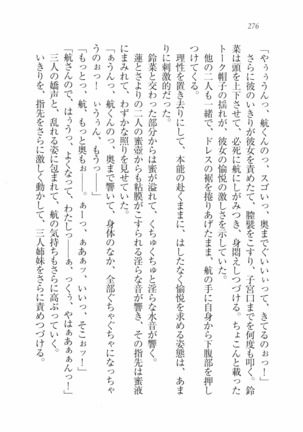 276
「やぅぅんっ、航くんのっ、スゴいっ、奥までぐいぃぃって、きてるのぉっ！」
さらに彼のいきりが彼女を責めたて、膣襞をこすり、子宮口までを何度も叩く。鈴
菜は頭を上下させて、必死に航にしがみつき、身悶えしつづける。ちょこんと載った
トーク帽子の揺れが、彼女の愉悦の激しさを示していた。
他の二人も一緒で、ドレスの裾を捲りあげたまま、航の手に自身から下腹部を押し
つけてくる。
理性を置き去りにして、本能の赴くままに、はしたなく愉悦を求める姿態は、あま
りに刺激的だった。
鈴菜と交わった部分からは蜜が溢れて、くちゅくちゅと淫らな水音が響く。
蓮とさよりの二人の蜜壺からも粘膜がこすられる淫らな音が響き、その指先は蜜液
にまみれて、わずかな照りを見せていた。
「ぁうんっ、航くんのっ、奥まで響いて、身体のなか、全部くちゃぐちゃになっちゃ
うのぉっ！　いぅうん、もうっ――」
「もっとっ、もっと奥もぉっ――。ぁーっ、あああッ、いいっ、そこぉッ！」
「航さんので、はぅうっ、よくなって、わたしっ――ぁ、っくぅ、やはぁあぁんっ！」
三人の嬌声と、乱れる姿に包まれて、航の気持ちもさらに高ぶっていく。
いきりを、指先をさらに激しく動かして、三人姉妹をさらに責めつづける。